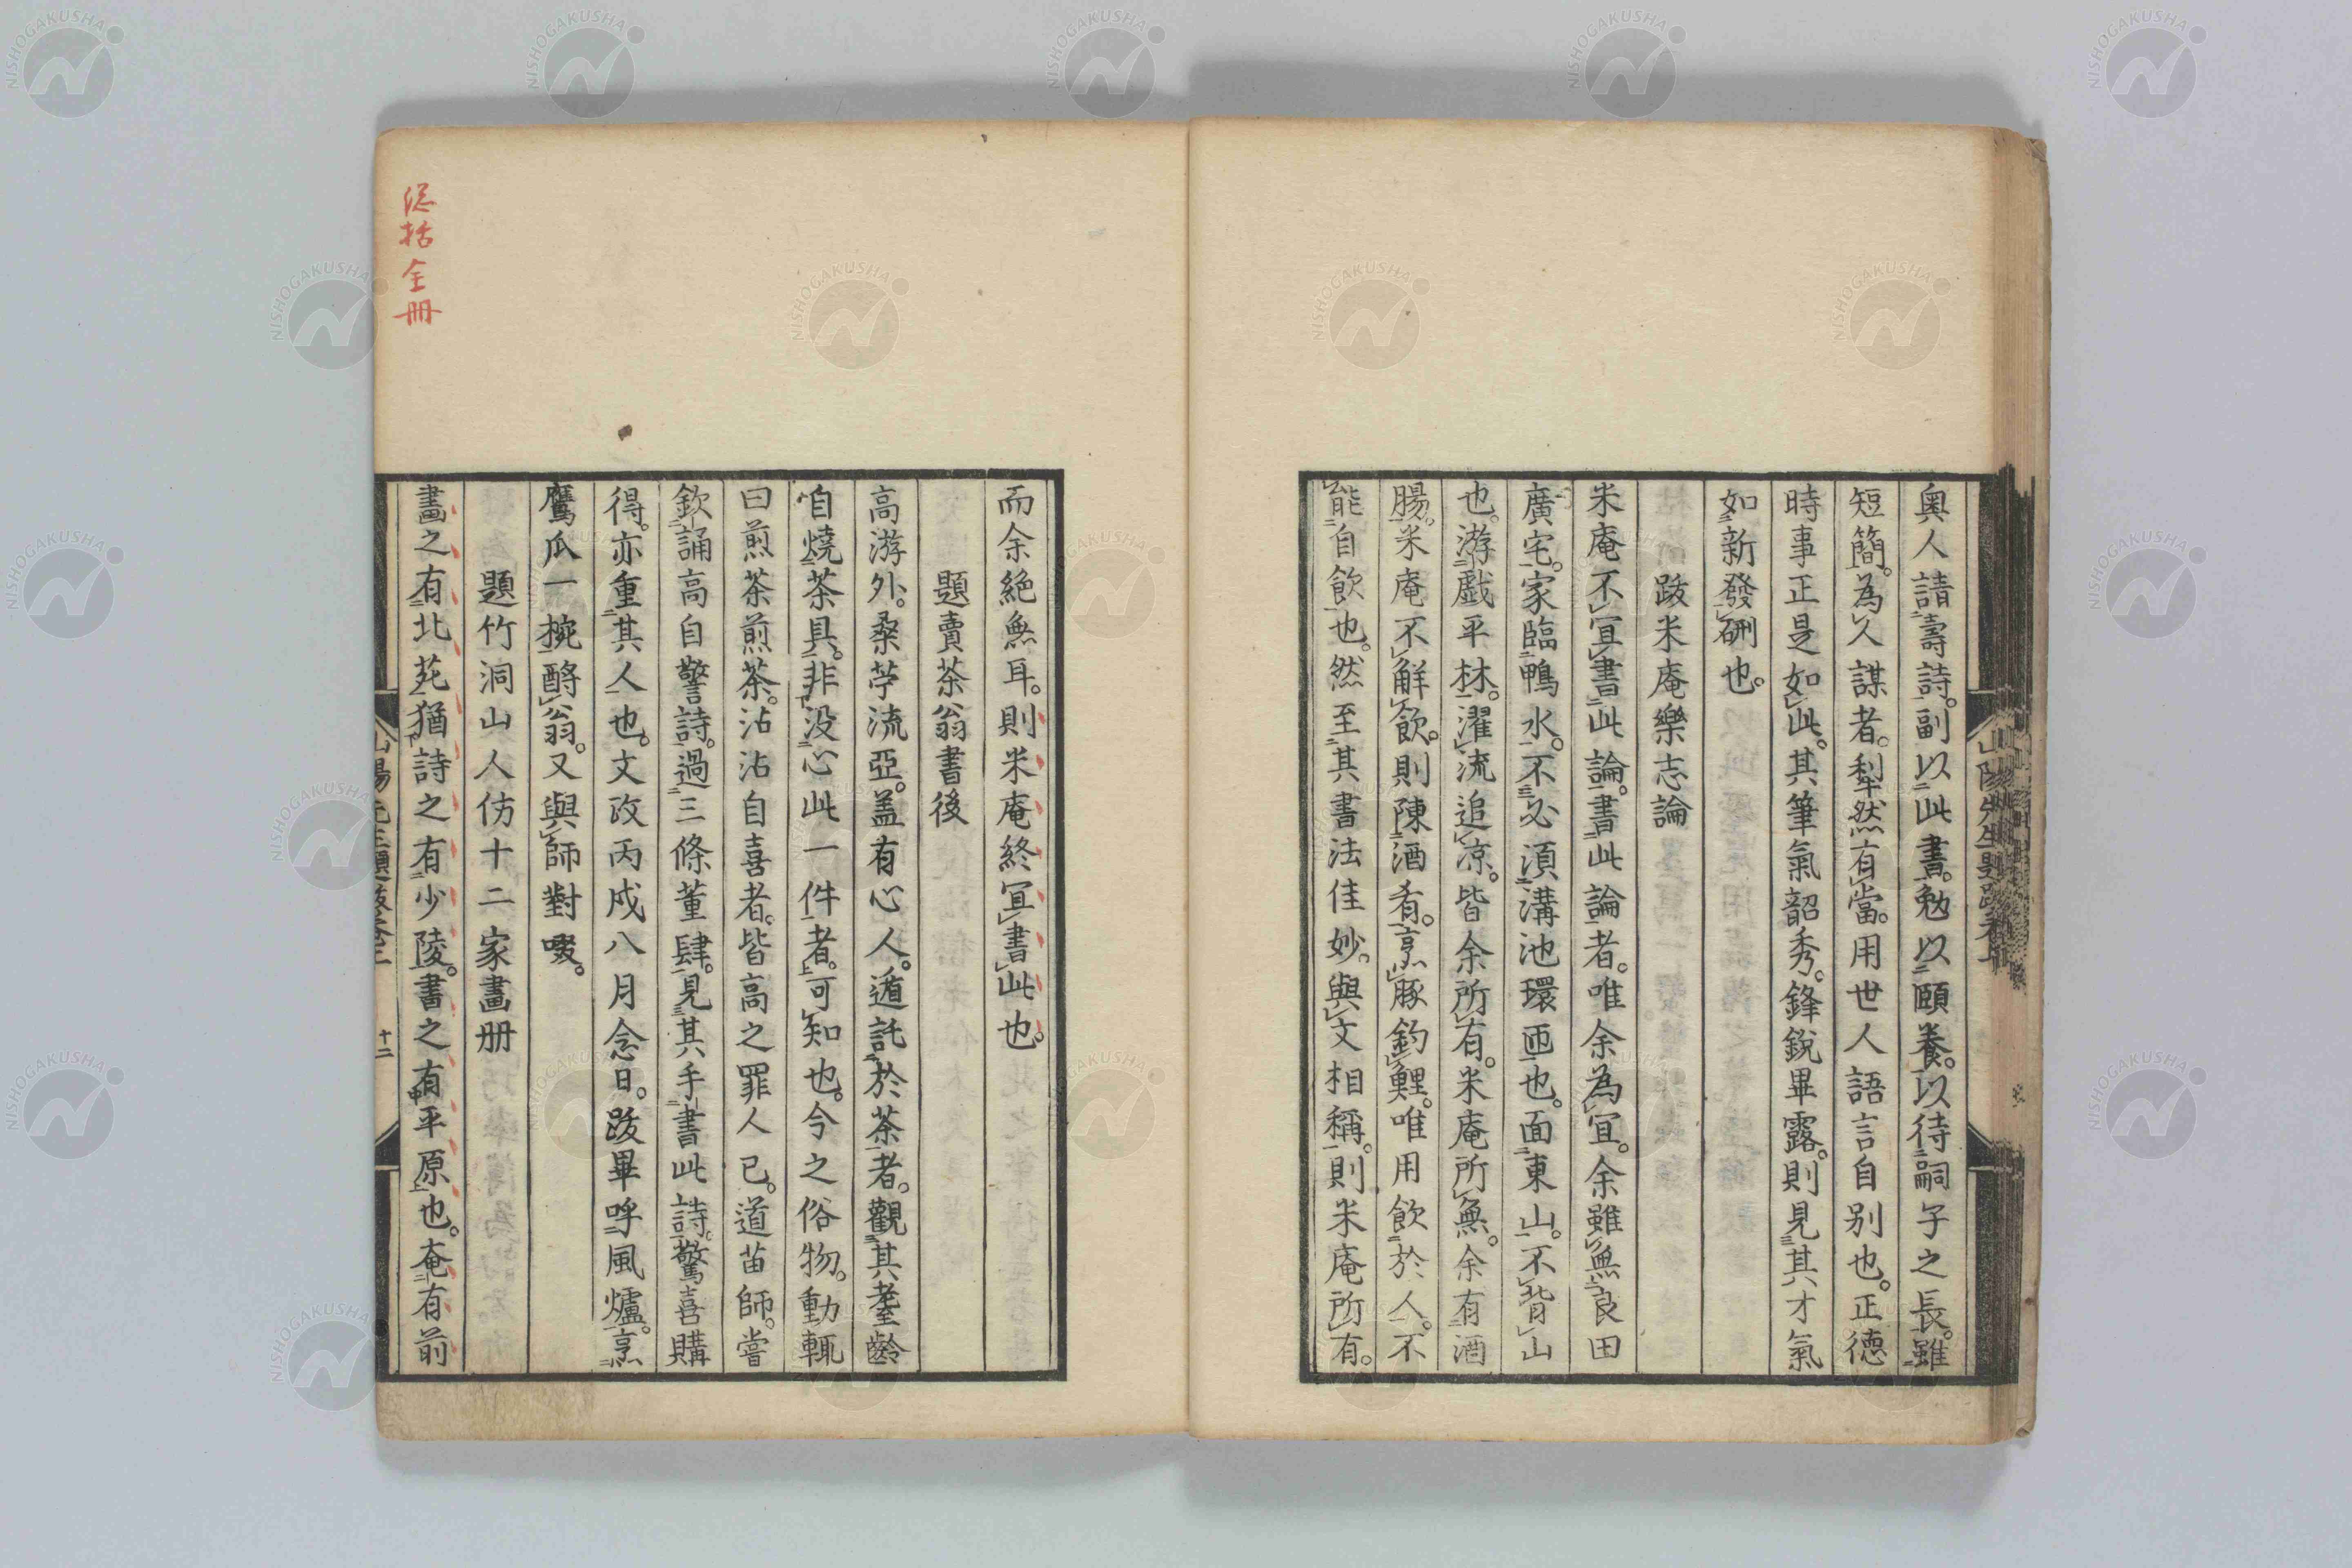 奧人請壽詩。副以此書。勉以頤養。以待嗣子之長。雖
短簡。為人謀者。犁然有當。用世人語言自別也。正德
時事正是如此。其筆氣韶秀。鋒銳畢露。則見其才氣
如新發硎也。
跋米庵樂志論
米庵不宜書此論。書此論者。唯余為宜。余雖無良田
廣宅。家臨鴨水。不必須溝池環匝也。面東山。不背山
也。游戲平林。濯流追涼。皆余所有。米庵所無。余有酒
腸。米庵不解飲。則陳酒肴。烹豚釣鯉。唯用飲於人。不
能自飲也。然至其書法佳妙。與文相稱。則米庵所有。
而余絕無耳。則米庵終宜書此也。
題賣茶翁書後
高游外。桑苧流亞。蓋有心人。遁託於茶者。觀其耋齡
自燒茶具。非沒心此一件者。可知也。今之俗物。動輒
曰煎茶煎茶。沾沾自喜者。皆高之罪人已。道苗師。嘗
欽誦高自警詩。過三條董肆。見其手書此詩。驚喜購
得。亦重其人也。文政丙戌八月念日。跋畢呼風爐。烹
鷹爪一捥。酹翁。又與師對啜。
題竹洞山人仿十二家畫册
畫之有北苑。猶詩之有少陵。書之有平原也。奄有前
総括全冊
山陽先生題跋卷上
十二
NISHOGAKUSHA